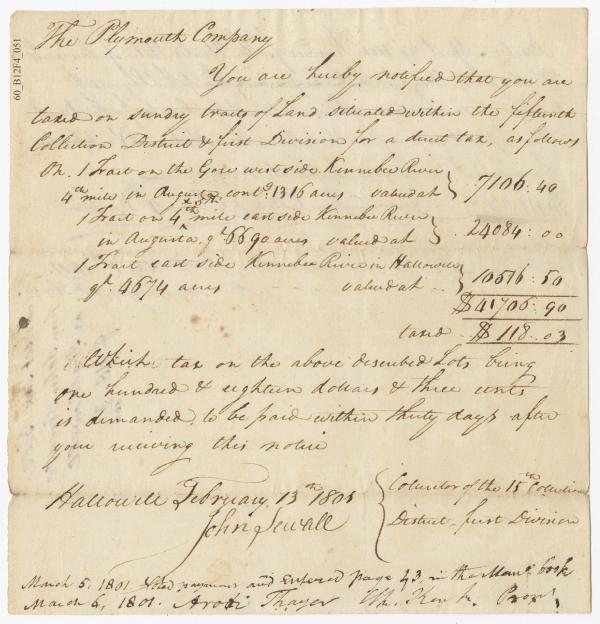 60_B12F4_051
The Plymouth Company
You are hereby notified that you are
taxed on sundry tracts of Land, situated within the fifteenth
Collection District & first Division for a direct tax, as follows
On. 1 Tract on the Gore west side Kennebec River
4th mile in Augusta contg. 1316 acres valued at } 7106:40
1 Tract on 4th & 5th mile east side Kennebec River
in Augusta, gt 6690 acres valued at } 24084:00
1 Tract east side Kennebec River in Hallowell
gt. 4674 acres valued at } 10516:50
$41706:90
taxed $118:03
Which tax on the above described Lots being
one hundred & eighteen dollars & three cents
is demanded, to be paid within thirty days after
your receiving this notice
Hallowell February 13th 1801 { Colector of the 15th Collection
John Sewall District - first Division
March 5, 1801 Voted payment and Entered page 43, in the book
March 6, 1801. Arodi Thayer